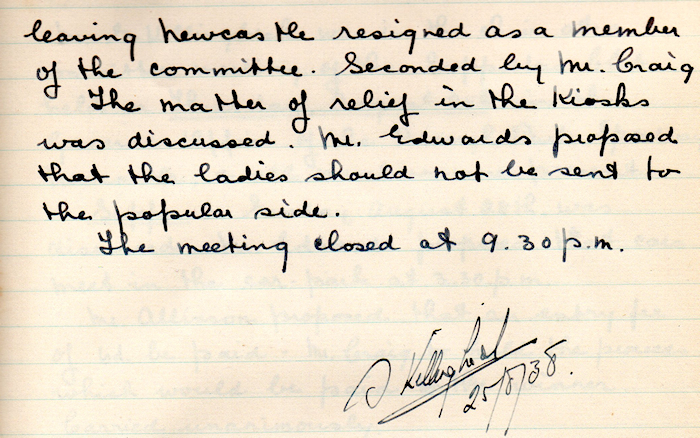 leaving Newcastle resigned as a member
of the committee. Seconded by Mr. Craig
The matter of relief in the Kiosks
was discussed. Mr. Edwards proposed
that the ladies should not be sent to
the popular side.
The meeting closed at 9.30 p.m.
25/8/38.